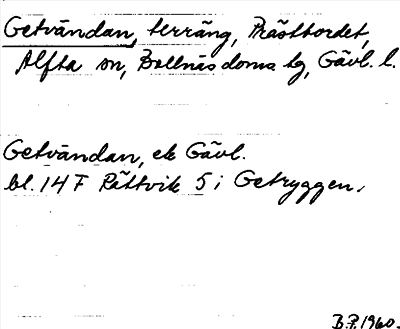 Getvändan, terräng, Prästbordet,
Alfta sn, Bollnäs doms. lg, Gävl. l.
Getvändan, ek Gävl.
bl. 14 F Rättvik 5 i Getryggen.
B.P. 1960.